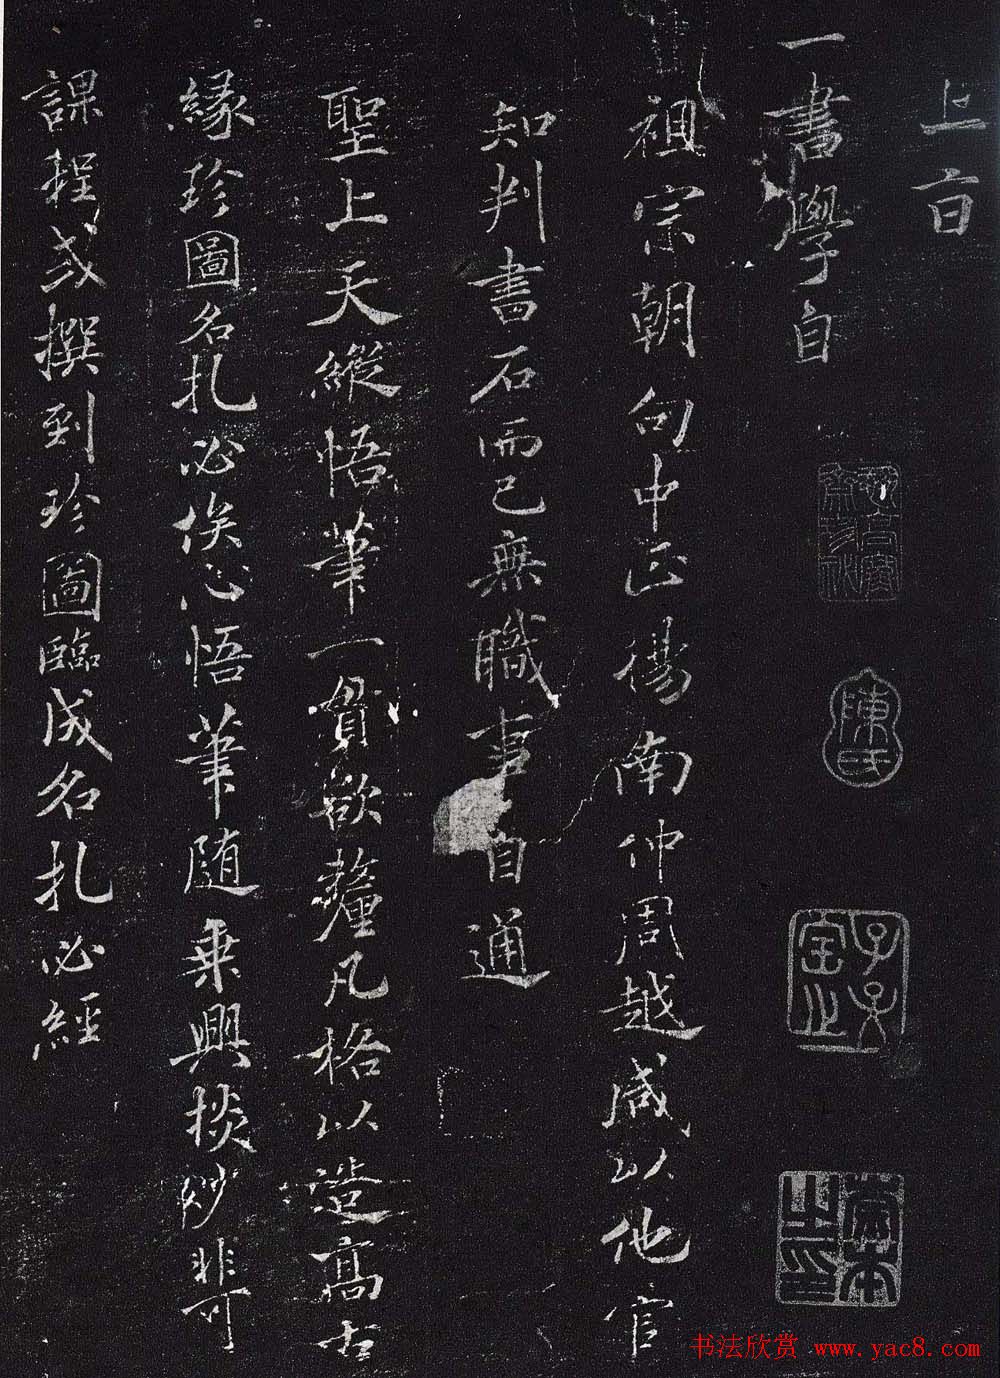 上言
一書學自
祖宗朝句中正楊南仲周越咸以他官
知判書石而已無職事自通
聖上天縱悟筆一貫欲釐凡格以造高古
緣珍圖名札必俟心悟筆隨乗興掞妙非可
課程或撰到珍圖臨成名札必經
陳氏
子子
宝之
书法欣赏 www.yac8.com